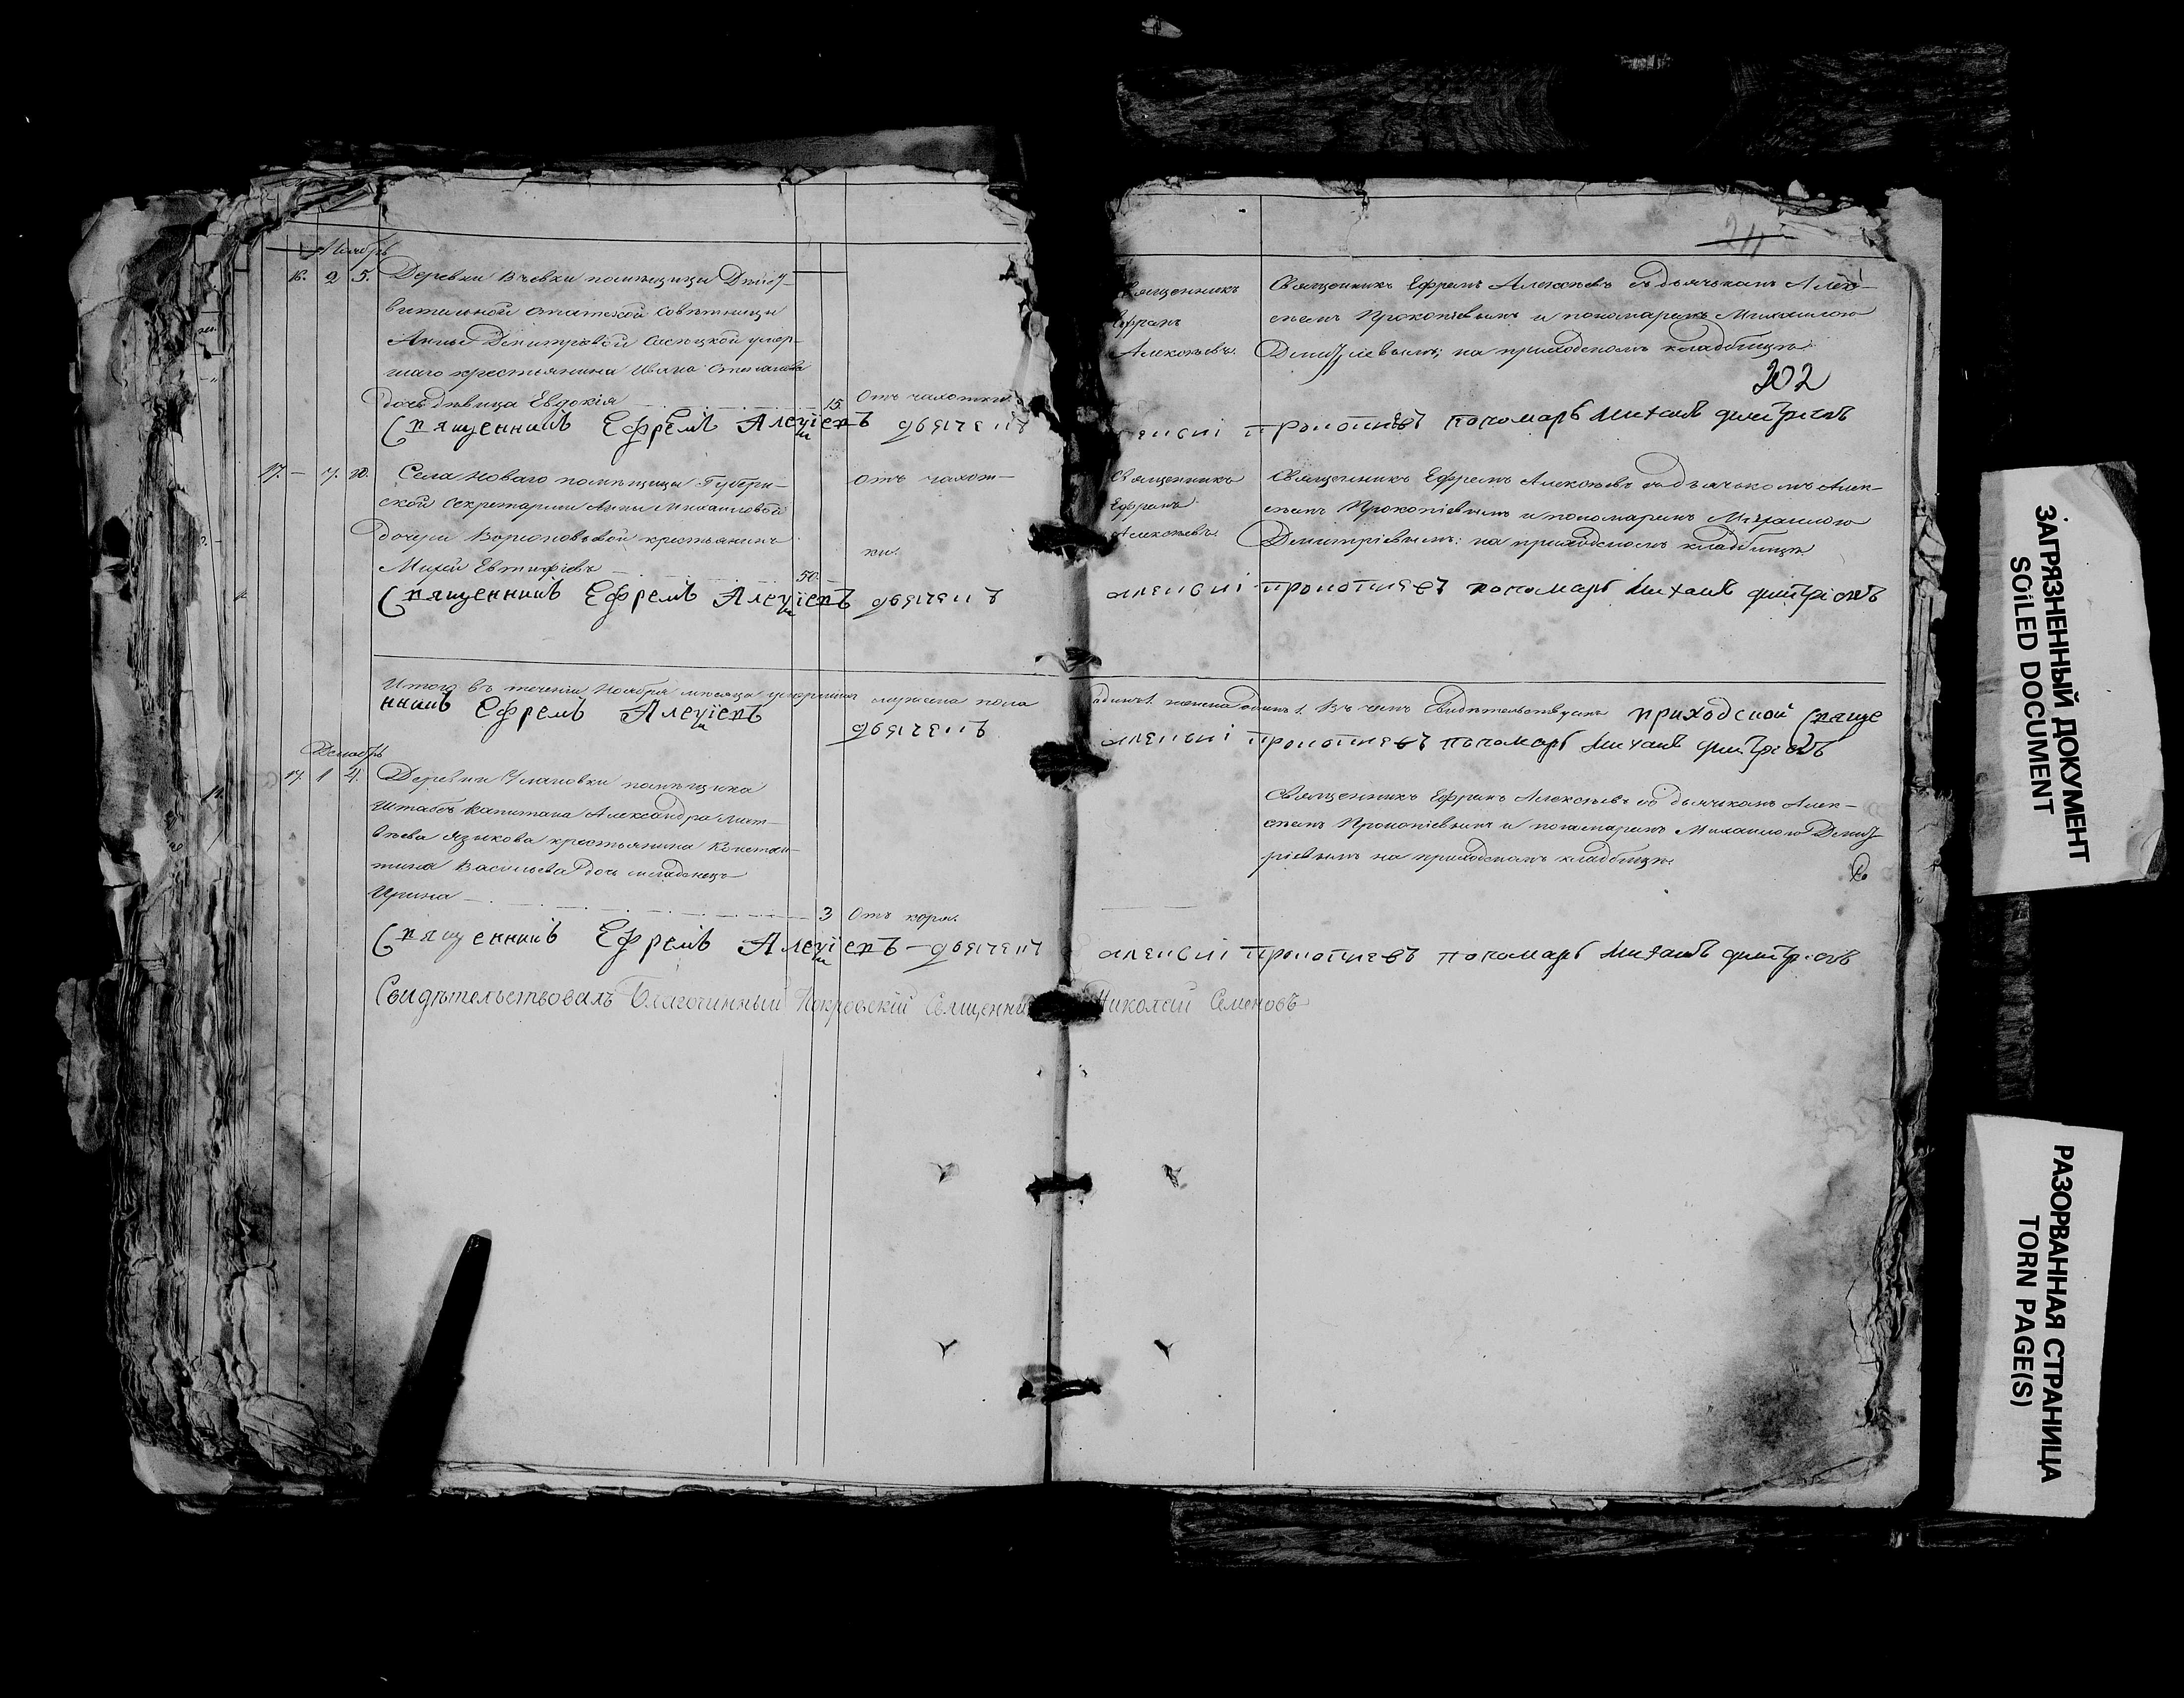 24
Ноябрь
16. 2 5. Деревни помѣщицы Дмит-
вительной статской совѣтницы
Анны Дмитріевой умер-
шаго крестьянина Ивана Степанова
дочь дѣвица Евдокія 15. Отъ чахотки.
Священникъ Ефремъ Алексіевъ дьячекъ
Священникъ
Ефремъ
Алексѣевъ.
Священникъ Ефремъ Алексѣевъ съ дьячкомъ Алек-
сѣемъ Прокопіевымъ и пономаремъ Михаиломъ
Дмитріевымъ; на приходскомъ кладбищѣ.
302
алексѣй прокопиевъ пономарь михаилъ дмитриевъ
17. — 7. 10. Села Новаго помѣщицы Губерн-
ской секретарши Анны Михаиловой
дочери крестьянинъ
Михей Евтифіевъ 50.
отъ чахот-
ки.
Священникъ Ефремъ Алексіевъ дьячекъ
Священникъ
Ефремъ
Алексѣевъ.
Священникъ Ефремъ Алексѣевъ съ дьячкомъ Алек-
сѣемъ Прокопіевымъ и пономаремъ Михаиломъ
Дмитріевымъ: на приходскомъ кладбищѣ
алексѣй прокопиевъ пономарь михаилъ дмитріевъ
Итого въ теченіи Ноября мѣсяца умершихъ мужеска пола одинъ 1. женска одинъ 1. Въ чемъ свидѣтельствуемъ приходской Свяще
нникъ Ефремъ Алексіевъ дьячекъ алексѣй прокопиевъ пономарь михаилъ дмитріевъ
Декабрь
17. 1 4. Деревни помѣщика
Штабсъ Капитана Александра Мат-
вѣева Языкова крестьянина Констан-
тина Васильева дочь младенецъ
Ирина 3 Отъ кори.
Священникъ Ефремъ Алексѣевъ съ дьячкомъ Алек-
сѣемъ Прокопіевымъ и пономаремъ Михаиломъ Дмит-
ріевымъ на приходскомъ кладбищѣ.
Священникъ Ефремъ Алексіевъ дьячекъ алексѣй прокопиевъ пономарь михаилъ дмитріевъ
Свидѣтельствовалъ Благочинный Покровскій Священникъ Николай Семеновъ
ЗАГРЯЗНЕННЫЙ ДОКУМЕНТ
SOiLED DOCUMENT
РАЗОРВАННАЯ СТРАНИЦА
TORN PAGE(S)